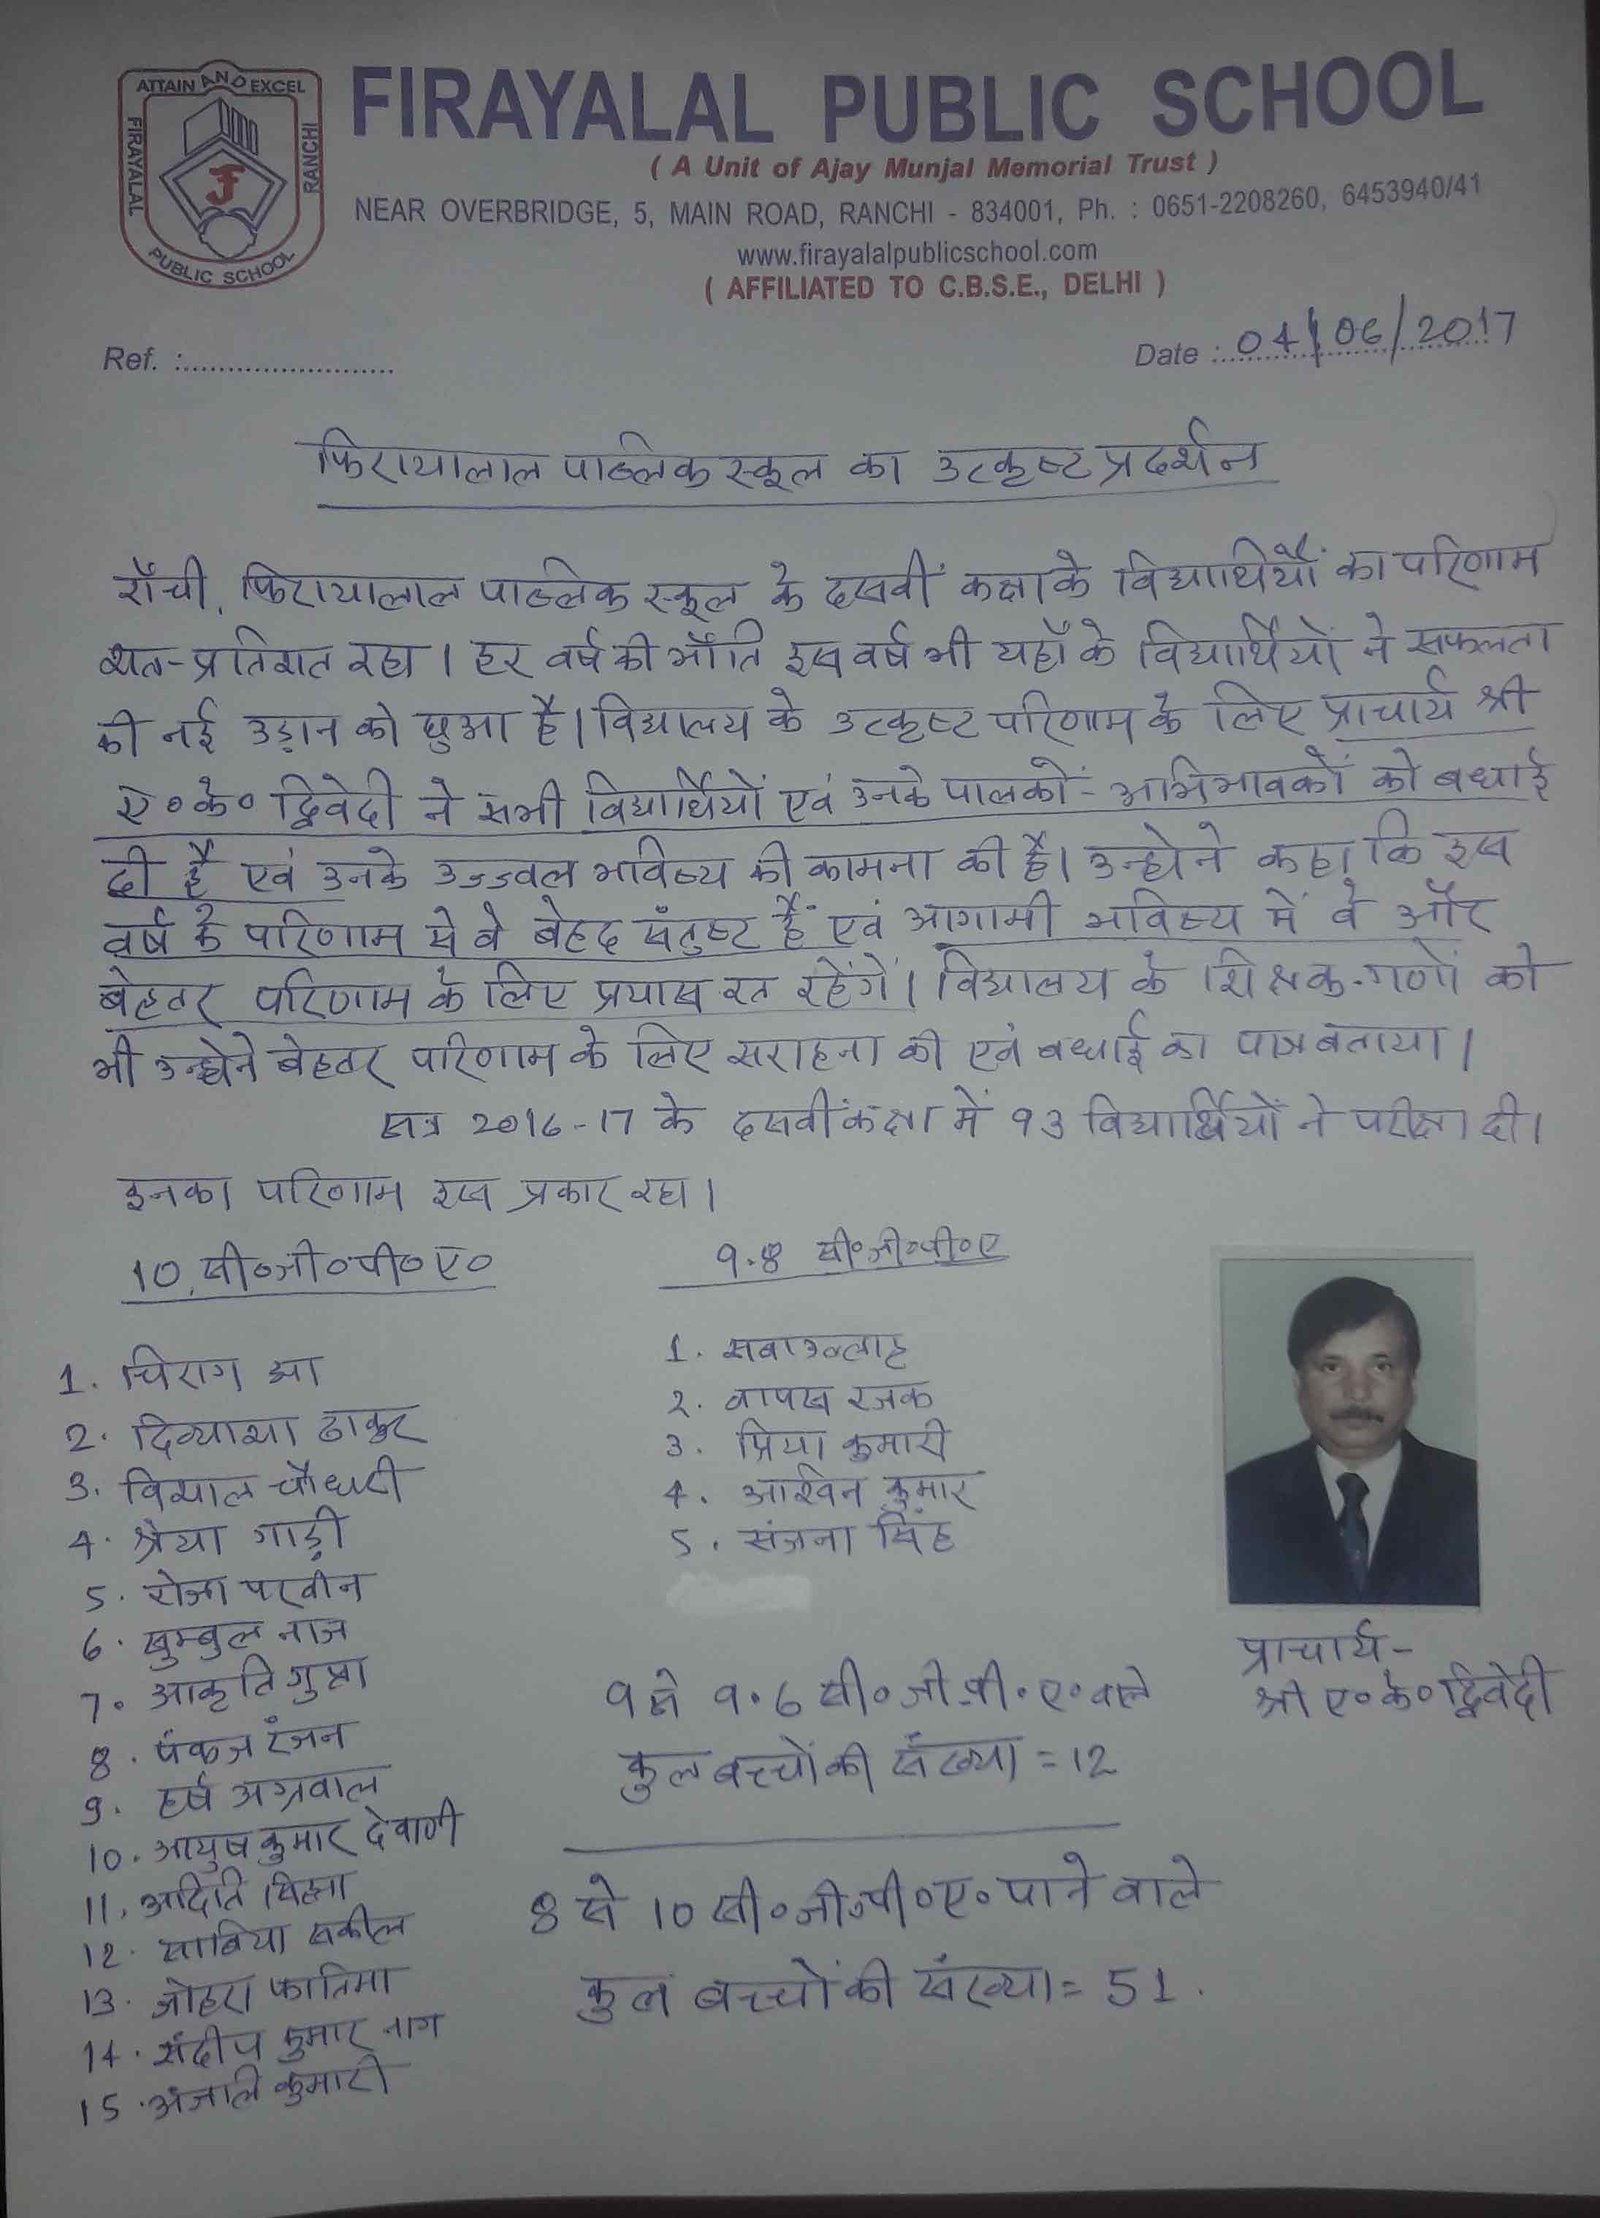 ATTAIN AND EXCEL
FIRAYALAL
RANCHI
PUBLIC SCHOOL
FIRAYALAL PUBLIC SCHOOL
( A Unit of Ajay Munjal Memorial Trust )
NEAR OVERBRIDGE, 5, MAIN ROAD, RANCHI - 834001, Ph. : 0651-2208260, 6453940/41
www.firayalalpublicschool.com
( AFFILIATED TO C.B.S.E., DELHI )
Ref. :..........................
Date : 04/06/2017
फिरायालाल पब्लिक स्कूल का उत्कृष्ट प्रदर्शन
राँची, फिरायालाल पब्लिक स्कूल के दसवीं कक्षा के विद्यार्थियों का परिणाम
शत-प्रतिशत रहा। हर वर्ष की भाँति इस वर्ष भी यहाँ के विद्यार्थियों ने सफलता
की नई उड़ान को छुआ है। विद्यालय के उत्कृष्ट परिणाम के लिए प्राचार्य श्री
ए॰ के॰ द्विवेदी ने सभी विद्यार्थियों एवं उनके पालकों - अभिभावकों को बधाई
दी है एवं उनके उज्ज्वल भविष्य की कामना की है। उन्होने कहा कि इस
वर्ष के परिणाम से वे बेहद संतुष्ट हैं एवं आगामी भविष्य में वे और
बेहतर परिणाम के लिए प्रयास रत रहेंगें। विद्यालय के शिक्षक-गणों को
भी उन्होने बेहतर परिणाम के लिए सराहना की एवं बधाई का पात्र बताया।
सत्र 2016-17 के दसवीं कक्षा में 93 विद्यार्थियों ने परीक्षा दी।
इनका परिणाम इस प्रकार रहा।
10. सी॰ जी॰ पी॰ ए॰
1. चिराग झा
2. दिव्याशा ठाकुर
3. विशाल चौधरी
4. श्रेया गाड़ी
5. रोजा परवीन
6. सुम्बुल नाज
7. आकृति गुप्ता
8. पंकज रंजन
9. हर्ष अग्रवाल
10. आयुष कुमार देवाणी
11. अदिति सिन्हा
12. साबिया सकील
13. जोहरा फातिमा
14. संदीप कुमार नाग
15. अंजलि कुमारी
9.8 सी॰ जी॰ पी॰ ए
1. सबाउल्लाह
2. तापस रजक
3. प्रिया कुमारी
4. आश्विन कुमार
5. संजना सिंह
9 से 9.6 सी॰ जी. पी. ए॰ वाले
कुल बच्चों की संख्या = 12
8 से 10 सी॰ जी. पी॰ ए॰ पाने वाले
कुल बच्चों की संख्या = 51.
प्राचार्य -
श्री ए॰ के॰ द्विवेदी